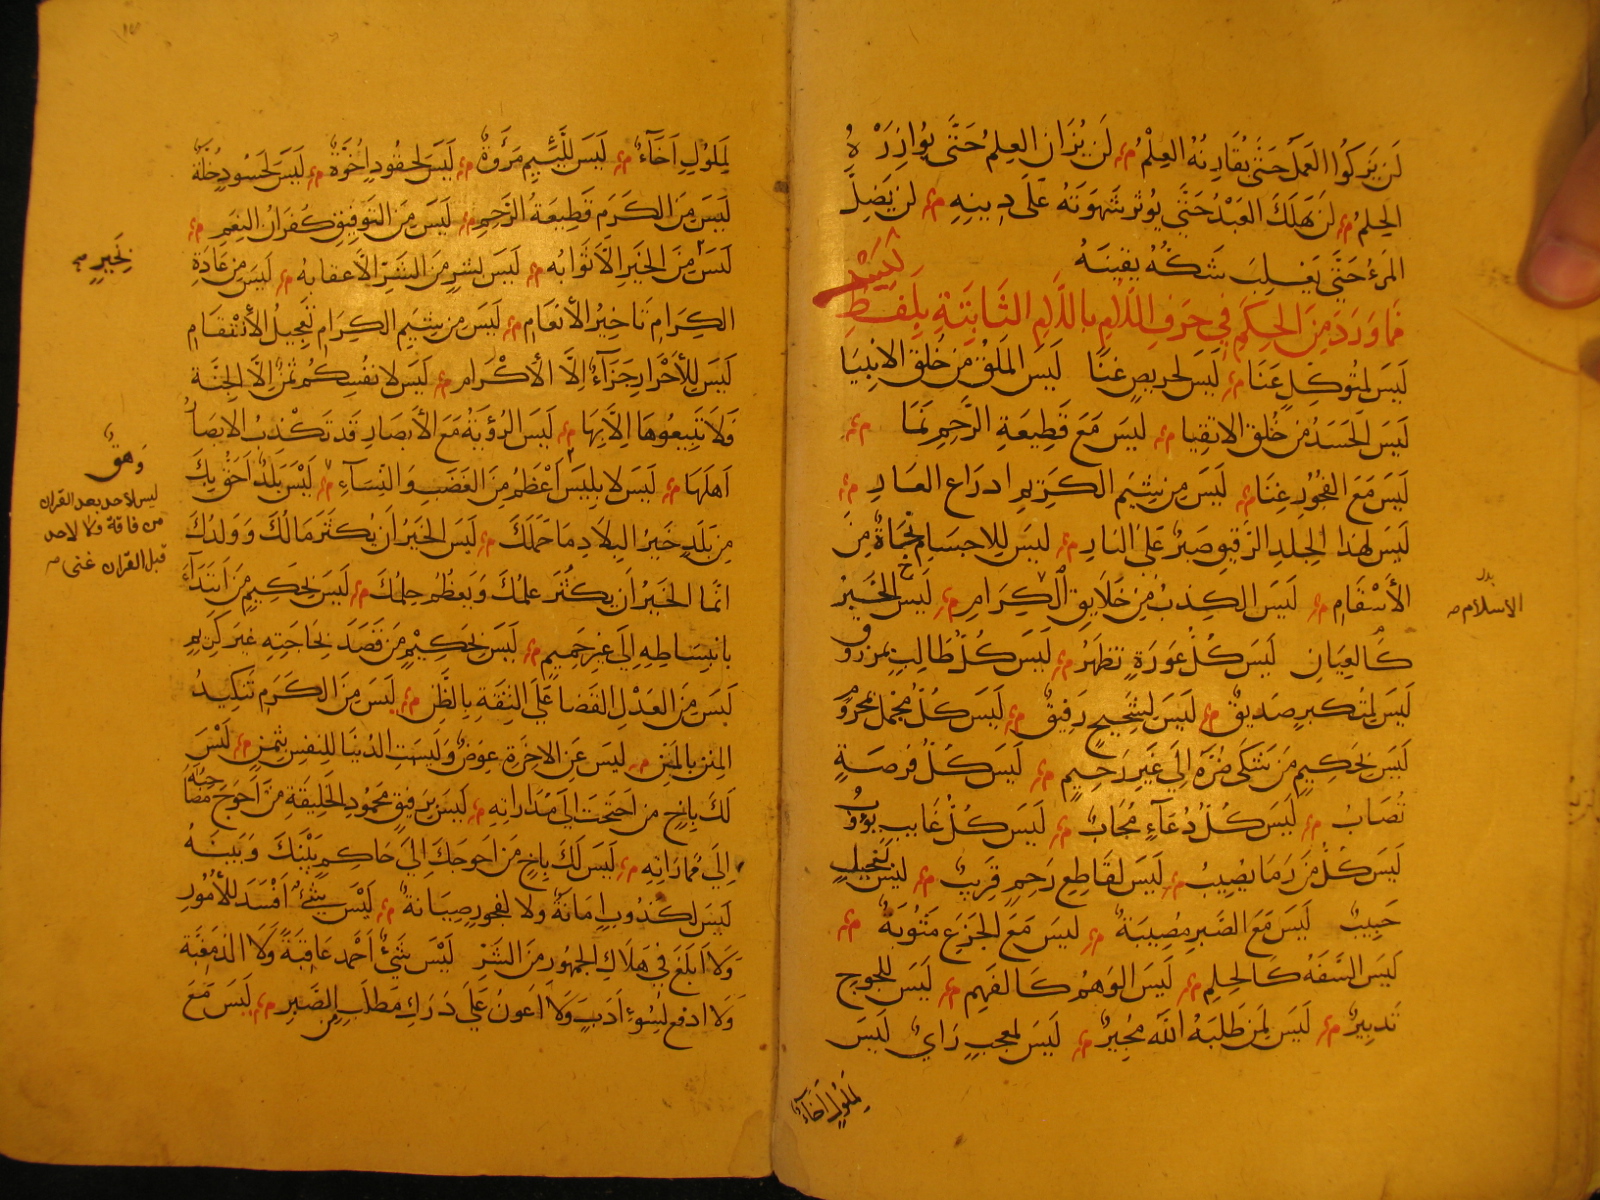 لَن يَزكُوا العَمَلُ حَتّىٰ يُقَارِنَهُ العِلْمُ لَن يُزَانَ العِلمُ حَتّىٰ يُوازِرَهُ
الحِلمُ لَن يَهلِكَ العَبْدُ حَتّىٰ يُوثِر شَهوَتَهُ عَلَى دِينِهِ لَن يَضِلَّ
المَرءُ حَتّىٰ يَغلِبَ شَكُّهُ يَقِينَهُ
مَا وَرَدَ مِنَ الحِكَمِ فِي حَرفِ اللَّامِ بِاللَّامِ الثَّابِتَةِ بِلَفظِ لَيسَ
لَيسَ لِمُتَوَكِّلٍ عَنَا لَيسَ لِحَرِيصٍ غِنًا لَيسَ المَلَقُ مِن خُلقِ الانبِيَا
لَيسَ الحَسَدُ مِن خُلقِ الاتقِيا لَيسَ مَعَ قَطِيعَةِ الرَّحِمِ نَمَا
لَيسَ مَعَ الفُجُورِ غِنَا لَيسَ مِن شِيَمِ الكَرِيمِ ادرَاعُ العَارِ
لَيسَ لِهَذا الجِلدِ الرَّقِيقِ صَبرٌ عَلَى النارِ لَيسَ لِلاجسَامِ نَجَاةٌ مِنَ
الأَسْقَامِ لَيسَ الكِذبُ مِن خَلَايِقِ الكِرَامِ لَيسَ الخَبَرُ
كَالعِيَانِ لَيسَ كُلُّ عَورَةٍ تَظهَرُ لَيسَ كُلُّ طَالِبٍ بِمَرزُوقٍ
لَيسَ لِمُتَكَبِّرٍ صَدِيقٌ لَيسَ لِشَحِيحٍ رَفِيقٌ لَيسَ كُلُّ مُجمِلٍ بِمَحرُومٍ
لَيسَ بِحَكِيمٍ مَن شَكَى ضُرَّهُ اِلَى غَيرِ رَحِيمٍ لَيسَ كُلُّ فُرصَةٍ
تُصَابُ لَيسَ كُلُّ دُعَآءٍ مُجَابٌ لَيسَ كُلُّ غَايِبٍ يَؤُوبُ
لَيسَ كُلُّ مَن رَمَا يُصِيبُ لَيسَ لِقَاطِعِ رَحِمٍ قَرِيبٌ لَيسَ لِبَخِيلٍ
حَبِيبٌ لَيسَ مَعَ الصَّبرِ مُصِيبَةٌ لَيسَ مَعَ الجَزَعِ مَثُوبَةٌ
لَيسَ السَّفَهُ كَالحِلمِ لَيسَ الوَهمُ كَالفَهمِ لَيسَ لِلَجُوجٍ
تَدبِيرٌ لَيسَ لِمَن طَلَبَهُ اللَّه مُجِيرٌ لَيسَ لِمُعجِبٍ رَايٌ لَيسَ
لِمَلُولٍ اَخَآءٌ
بدل
الاسلام
لِمَلُولٍ اِخَآءٌ لَيسَ لِلَّئِيمِ مَرُوَّةٌ لَيسَ لِحَقُودٍ اُخُوَّةٌ لَيسَ لِحَسُودٍ خُلَّةٌ
لَيسَ مِنَ الكَرَمِ قَطِيعَةُ الرَّحِمِ لَيسَ مِنَ التَوفِيقِ كُفرَانُ النِعَمِ
لَيسَ مِنَ الخَيرِ اِلَّا ثَوَابُه لَيسَ بِشَرٍّ مِنَ الشَرِّ اِلَّا عِقابُه لَيسَ مِن عَادَةِ
الكِرَامِ تَاخِيرُ الأنعَامِ لَيسَ مِن شِيَمِ الكِرَامِ تَعجِيلُ الأنتقَامِ
لَيسَ لِلأَحْرَارِ جَزَآءٌ اِلَّا الأكْرَام لَيسَ لانفُسِكُم ثَمَنٌ اِلَّا الجَنَّة
فَلَا تَبِيعُوهَا اِلَّا بِهَا لَيسَ الرُؤيَةُ مَعَ الأبصَارِ قَد تَكْذِبُ الابصَارُ
اَهلَهَا لَيسَ لابلِيسَ اَعْظَمُ مِنَ الغَضَبِ وَ النِّسَآءِ لَيْسَ بَلَدٌ اَحَقُّ بِكَ
مِن بَلَدٍ خَيرُ البِلَادِ مَا حَمَلَكَ لَيسَ الخَيرُ ان يكثُرَ مَالُكَ وَ وَلَدُكَ
انَّمَا الخَيرُ ان يَكْثُرَ عِلمُكَ وَيَعظُمُ حِلمُكَ لَيسَ بِحَكِيمٍ مَن ابتَدَأَ
بِانبِسَاطِهِ اِلَى غَيرِ حَمِيمٍ لَيسَ بِحَكِيمٍ مَن قَصَدَ بِحَاجَتِهِ غَيرَ كَرِيمٍ
لَيسَ مِنَ العَدْلِ القَضَا عَلَى الثِّقَةِ بِالظَّنِ لَيسَ مِنَ الكَرَمِ تَنكِيدُ
المِنَنِ بالمَنّ لَيسَ عَنِ الاخِرَةِ عِوَضٌ وَلَيسَتِ الدُنيَا لِلنفسِ بِثَمَنٍ لَيْسَ
لَكَ بِاَخٍ مَن احتَجتَ الَى مُدَارَاتِهِ لَيسَ بِرَفِيقٍ مَحمُودِ الخَلِيقَةِ مَن اَحوَجَ صَاحِبَهُ
اِلَى مُمَارَاتِهِ لَيسَ لَكَ بِاَخٍ مَن اَحوَجَكَ اِلَى حَاكِمٍ بَيْنَكَ وَبَينَهُ
لَيسَ لِكَذُوبٍ اَمَانَةٌ وَلا لِفُجُورٍ صِيَانَةٌ لَيْسَ شَيْءٌ اَفْسَدَ لِلأُمُورِ
وَلَا اَبلَغَ فِي هَلَاكِ الجُمهُورِ مِنَ الشَّرّ لَيْسَ شَيْءٌ اَحْمَد عَاقِبَةً وَلَا اَلَذّ مَغَبَّة
وَلَا ادفع لِسُوءِ اَدَبٍ وَلَا اَعوَنُ عَلَى دَركِ مَطلَبٍ مِن الصَّبرِ لَيسَ مَعَ
بِخَيرٍ
وَهقٌ
ليس لاحد بعد القران
من فاقة ولا لاحد
قبل القران غنى